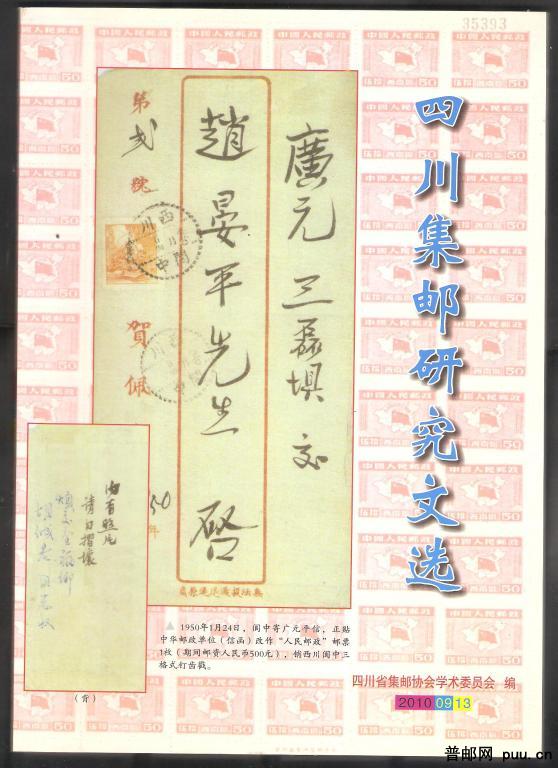 35393
四川集邮研究文选
廣元三磊埧 交
趙晏平先生 啓
第 弍 號
賀佩
50
年
西川
閬中
内有照片
请勿摺壞
(背)
▲ 1950年1月24日，阆中寄广元平信，正贴
中华邮政单位（信函）改作“人民邮政”邮票
1枚（期间邮资人民币500元），销西川阆中三
格式打齿戳。
四川省集邮协会学术委员会 编
2010 09 13
中國人民郵政
伍拾 西南區 50
普邮网 puu.cn